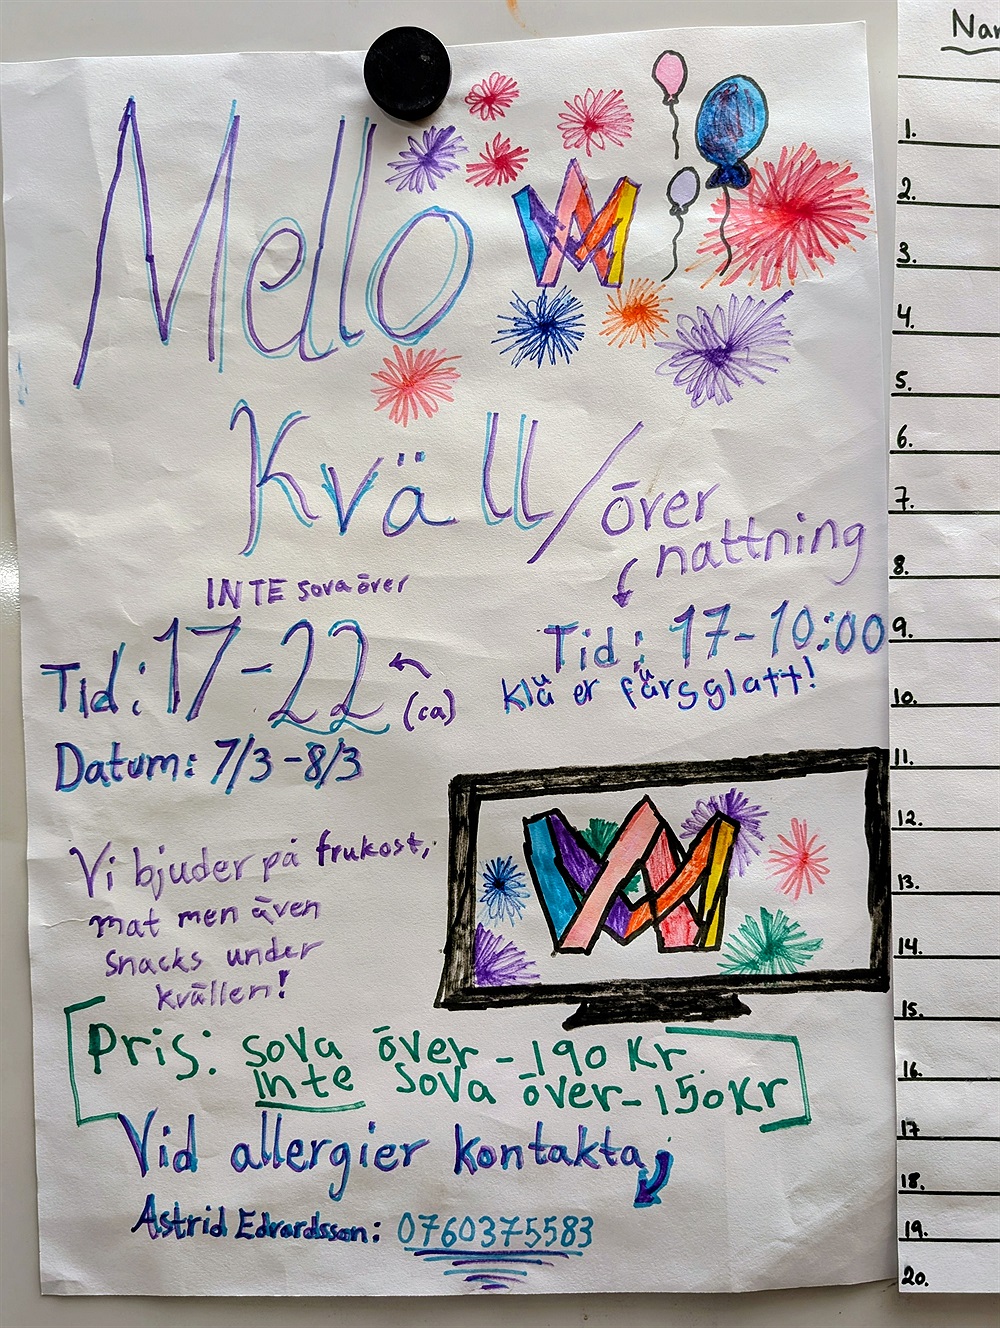 Mello
Kväll/över
nattning
INTE sova över
Tid: 17-22
(ca)
Datum: 7/3-8/3
Tid: 17-10:00
Klä er färgsglatt!
Vi bjuder på frukost,
mat men även
snacks under
kvällen!
Pris: sova över - 190 Kr.
inte sova över - 150Kr
Vid allergier kontakta;
Astrid Edvardsson: 0760375583
Nar
1.
2.
3.
4.
5.
6.
7.
8.
9.
10.
11.
12.
13.
14.
15.
16.
17
18.
19.
20.